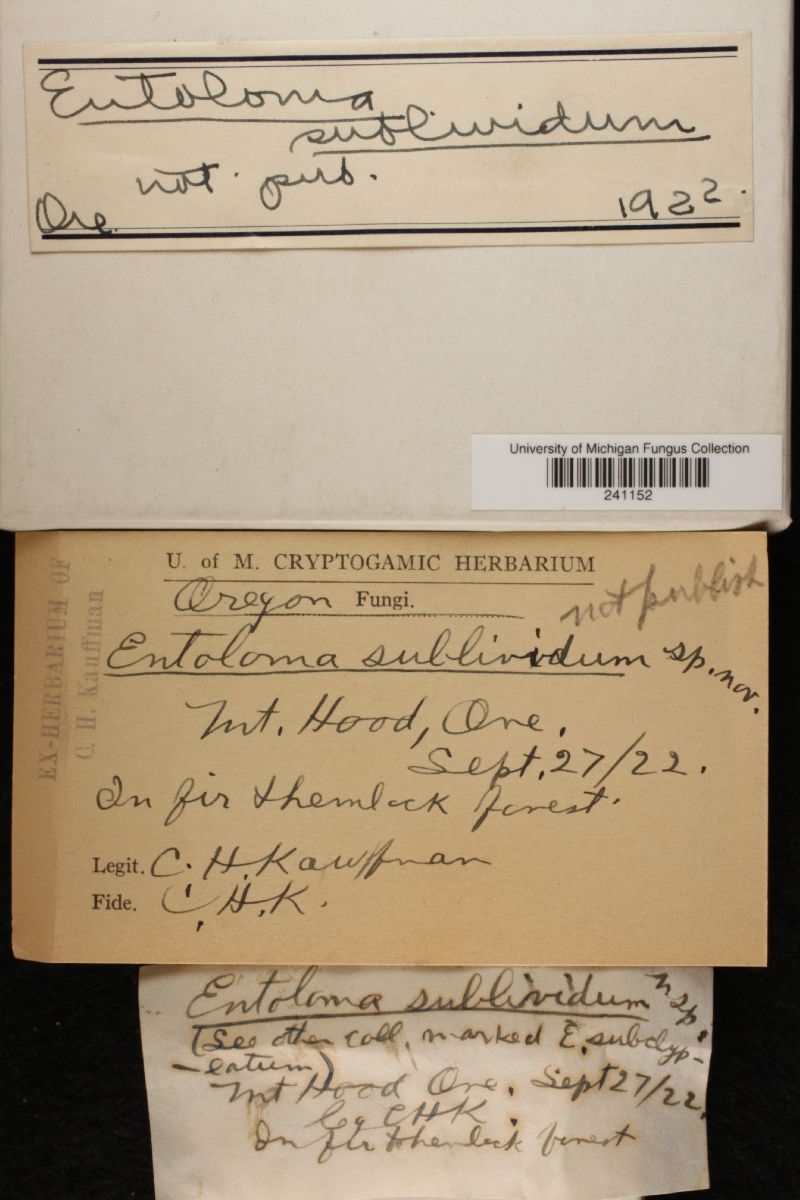 Entoloma
sublividum
not pub.
Ore. 1922.
University of Michigan Fungus Collection
241152
U. of M. CRYPTOGAMIC HERBARIUM
Oregon Fungi.
not publish
EX-HERBARIUM OF
C. H. Kauffman
Entoloma sublividum sp. nov.
Mt. Hood, Ore.
Sept. 27/22.
In fir & hemlock forest.
Legit. C. H. Kauffman
Fide. C. H. K.
Entoloma sublividum n sp.
(See other coll. marked E. subclyp-
-eatum)
Mt Hood Ore. Sept 27/22.
CHK.
In fir & hemlock forest